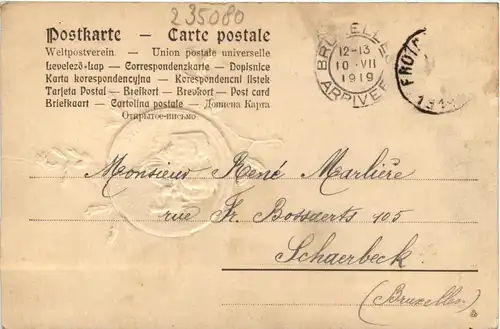 235080
Postkarte — Carte postale
Weltpostverein — Union postale universelle
Levelező-Lap — Correspondenzkarte — Dopisnice
Karta korespondencyjna — Korespondencni listek
Tarjeta Postal — Briefkort — Brevkort — Post card
Briefkaart — Cartolina postale — Дописна Карта
Открытое-письмо
BRUXELLES
12-13
10 VII
1919
ARRIVEE
Monsieur René Marlière
rue Fr. Bossaerts 105
Schaerbeck
(Bruxelles)